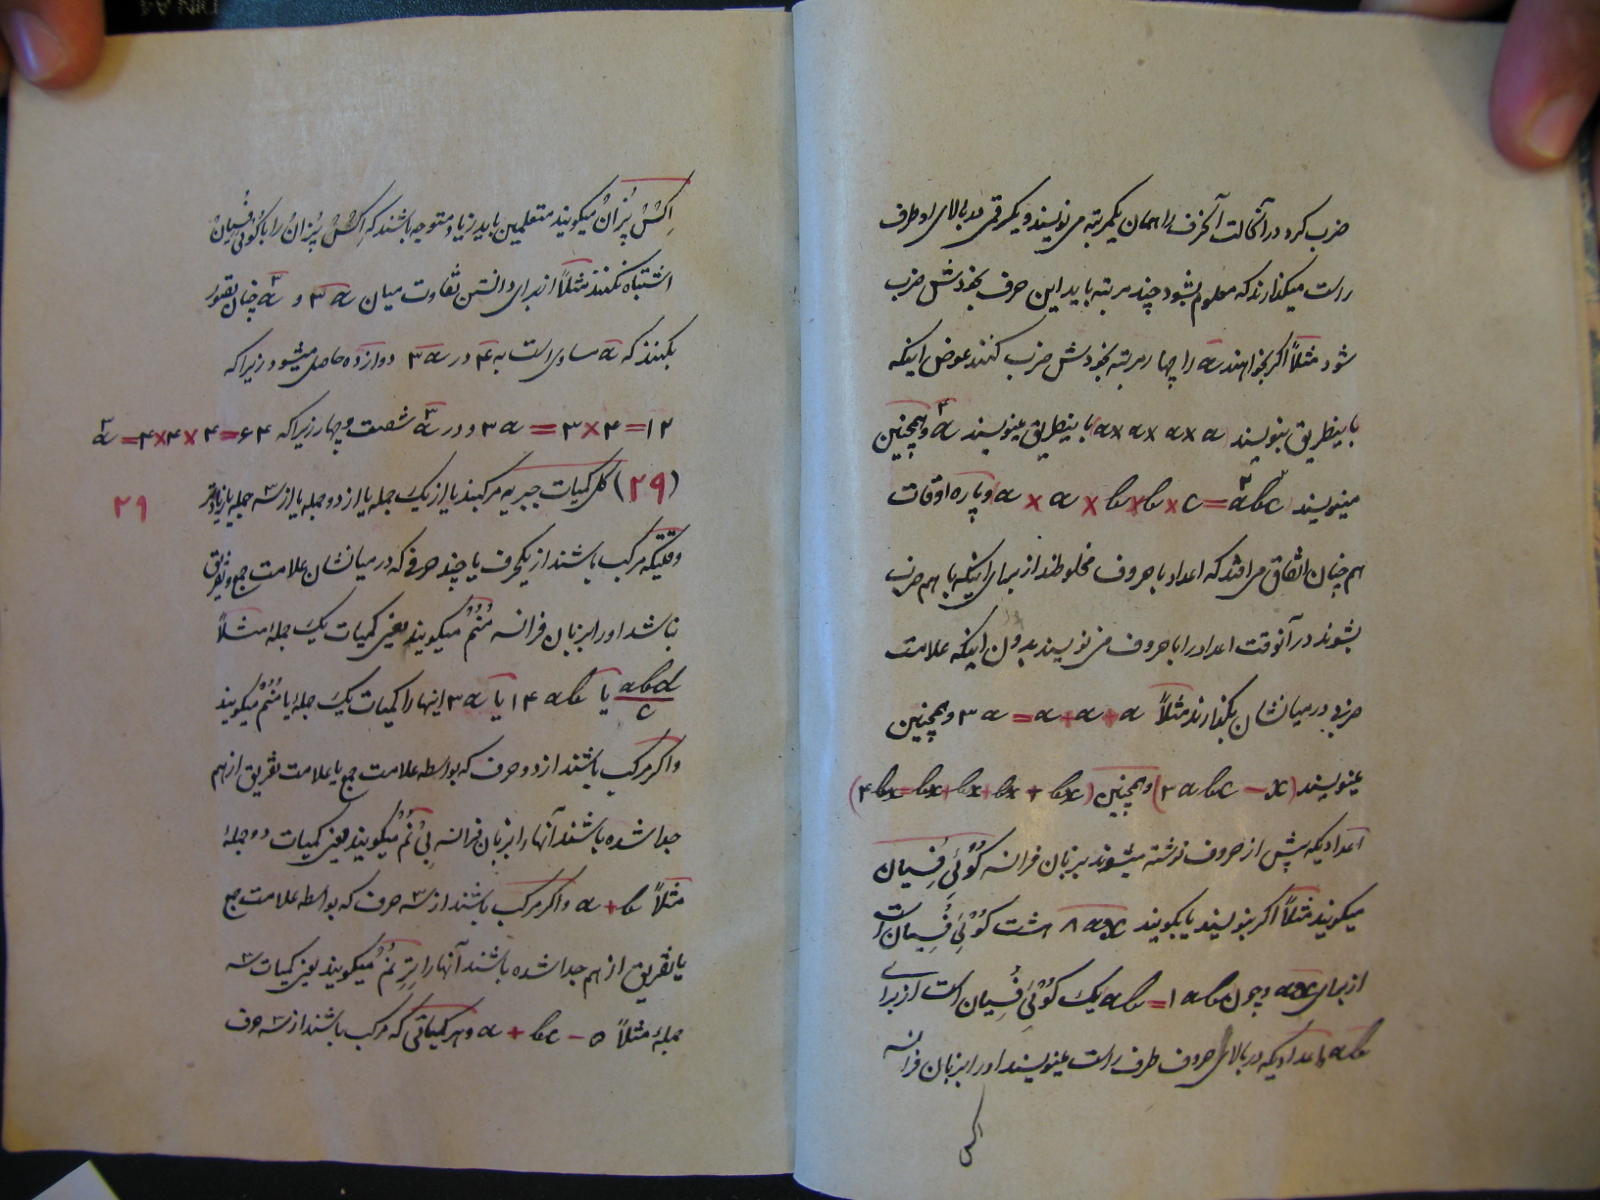 ضرب کرد در آنحالت آنحرف را همان یکمرتبه می نویسند و یکرقمی در بالای او طرف
راست میکذارند که معلوم بشود چند مرتبه باید این حرف بخودش ضرب
شود مثلاً اکر بخواهند a را چهار مرتبه بخودش ضرب کنند عوض اینکه
باینطریق بنویسند a × a × a × a باینطریق مینویسند a⁴ و همچنین
مینویسند a × a × b × b × c = a²b²c و پاره اوقات
هم چنان اتفاق می افتد که اعداد با حروف مخلوطند از برای اینکه با هم ضرب
بشوند در آنوقت اعداد را با حروف می نویسند بدون اینکه علامت
ضرب در میانشان بکذارند مثلاً a + a + a = ۳a و همچنین
مینویسند (۲abc − x) و همچنین (bx + bx + bx + bx = ۴bx)
اعدادیکه پیش از حروف نوشته میشوند بزبان فرانسه کُوئِفِسیان
میکویند مثلاً اکر بنویسند یا بکویند ۸ax هشت کُوئِفِسیان است
از برای ax و چون ab = ۱ab یک کُوئِفِسیان است از برای
ab و اعدادیکه در بالای حروف طرف راست مینویسند او را بزبان فرانسه
اِکْسْپُزانْ میکویند متعلمین باید زیاد متوجه باشند که اِکْسْپُزانْ را با کُوئِفِسیانْ
اشتباه نکنند مثلاً از برای دانستن تفاوت میان ۳a و a³ چنان تصور
بکنند که a مساوی است به ۴ در ۳a دوازده حاصل میشود زیرا که
۳a = ۳ × ۴ = ۱۲ و در a³ شصت و چهار زیرا که a³ = ۴ × ۴ × ۴ = ۶۴
(۲۹) کل کمیات جبریه مرکبند یا از یک جمله یا از دو جمله یا از سه جمله یا زیادتر
۲۹
وقتیکه مرکب باشند از یکحرف یا چند حرفی که در میانشان علامت جمع و تفریق
نباشد او را بزبان فرانسه مُنُمْ میکویند یعنی کمیات یک جملهٔ مثلاً
abd/c یا ۱۴ab یا ۳a اینها را کمیات یک جملهٔ یا مُنُمْ میکویند
و اکر مرکب باشند از دو حرف که بواسطه علامت جمع یا علامت تفریق از هم
جدا شده باشند آنها را بزبان فرانسه بی نُمْ میکویند یعنی کمیات دو جملهٔ
مثلاً a + b و اکر مرکب باشند از سه حرف که بواسطه علامت جمع
یا تفریق از هم جدا شده باشند آنها را تِرِنُمْ میکویند یعنی کمیات سه
جملهٔ مثلاً a + bc − ۵ و هر کمیاتی که مرکب باشند از سه حرف